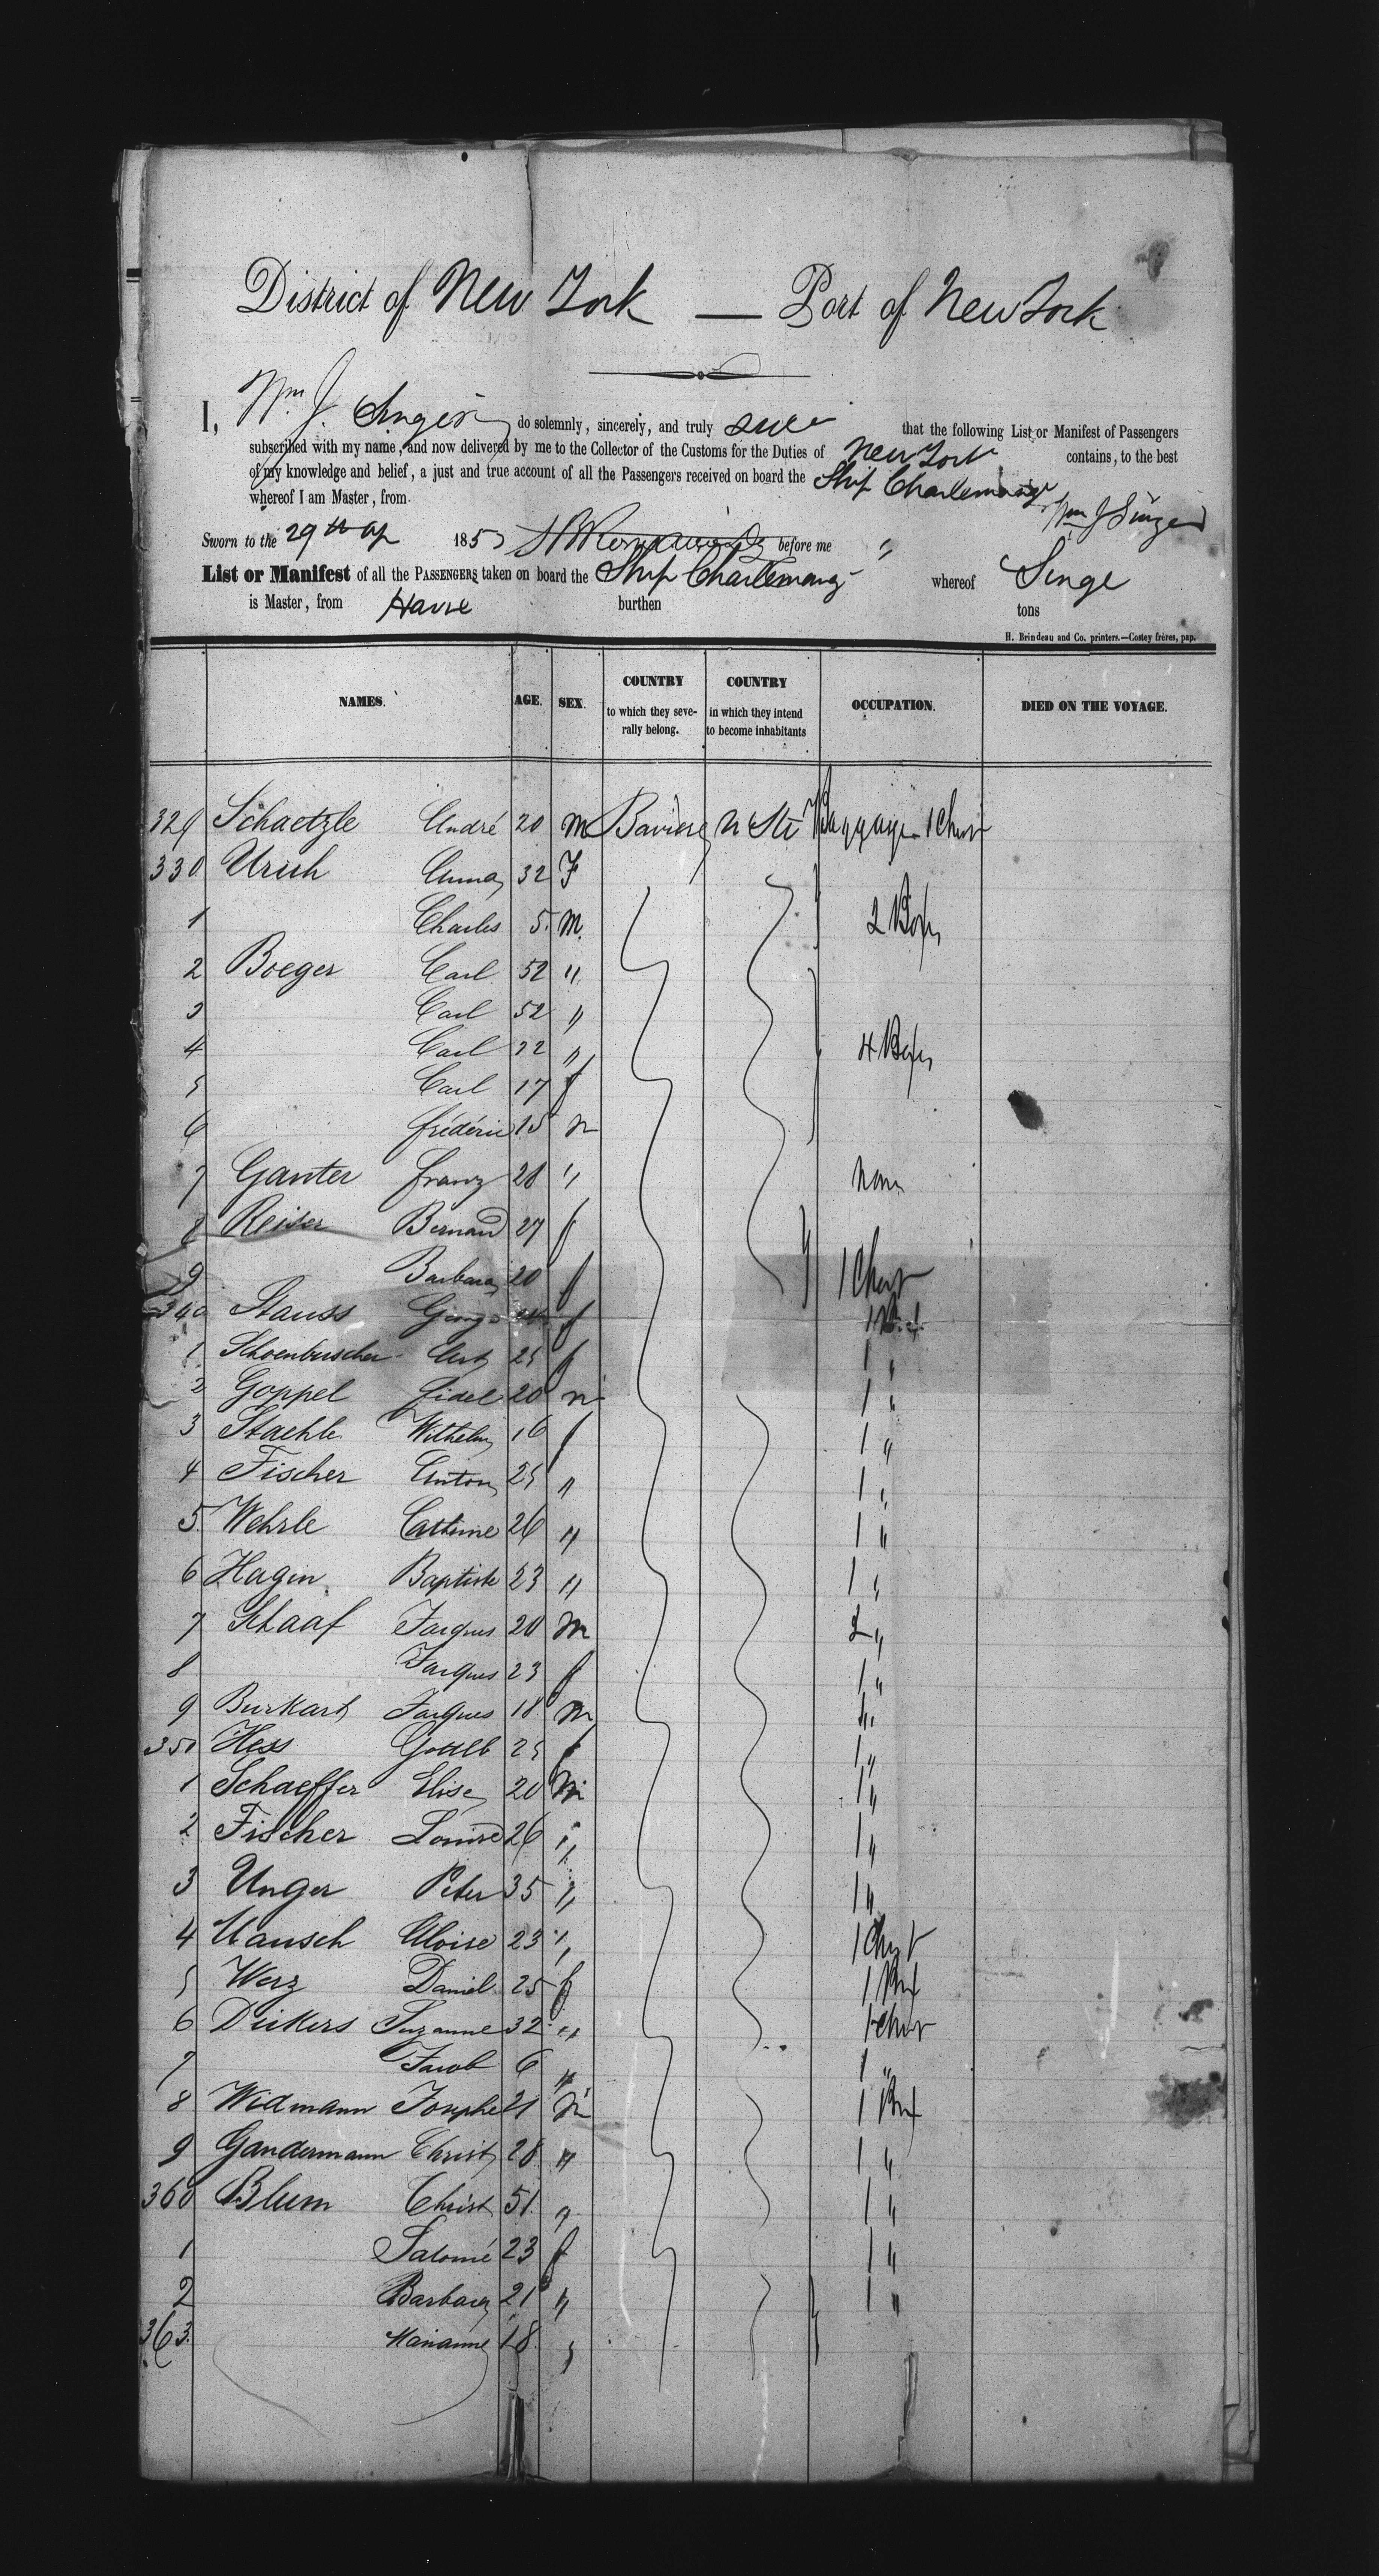 District of New York — Port of New York
I, Wm. J. Singer do solemnly, sincerely, and truly that the following List or Manifest of Passengers
subscribed with my name, and now delivered by me to the Collector of the Customs for the Duties of New York contains, to the best
of my knowledge and belief, a just and true account of all the Passengers received on board the Ship Charlemagne
whereof I am Master, from. Wm J Singer
Sworn to the 29th Ap 1853 before me
List or Manifest of all the PASSENGERS taken on board the Ship Charlemang whereof Singe
is Master, from Havre burthen tons
H. Brindeau and Co. printers.—Costey frères, pap.
NAMES. AGE. SEX. COUNTRY to which they severally belong. COUNTRY in which they intend to become inhabitants OCCUPATION. DIED ON THE VOYAGE.
329 Schaetzle André 20 m Baviere U Sts Baggage 1 Chest
330 Urich Anna 32 F
1 Charles 5 m. 2 Boxes
2 Boeger Carl 52 "
3 Carl 52 "
4 Carl 22 " 4 Boxes
5 Carl 17 f
6 frédéric 15 m
7 Ganter franz 28 " None
8 Reiser Bernard 27 f
9 Barbara 20 f 1 Chest
340 Stauss George f 1 Box
1 Schoenbuscher 25 f 1 "
2 Goppel fidel 20 m 1 "
3 Staehle Wilhelm 16 f 1 "
4 Fischer Anton 25 " 1 "
5 Wehrle Catherine 26 " 1 "
6 Hagin Baptiste 23 " 1 "
7 Schaaf Jacques 20 m 2 "
8 Jacques 23 f 1 "
9 Burkart Jacques 18 m
350 Hess Gottlb 25 f 1 "
1 Schaeffer Elise 20 m 1 "
2 Fischer Louise 26 " 1 "
3 Unger Peter 35 " 1 "
4 Mausch Aloise 23 " 1 Chest
5 Werz Daniel 25 f 1 Box
6 Dickers Suzanne 32 " 1 Chest
7 Jacob 6 " 1 "
8 Widmann Josephe 21 m 1 Box
9 Gandermann Christ 28 " 1 "
360 Blum Christ 51 " 1 "
1 Salomé 23 f 1 "
2 Barbara 21 " 1 "
363 Marianne 18 "